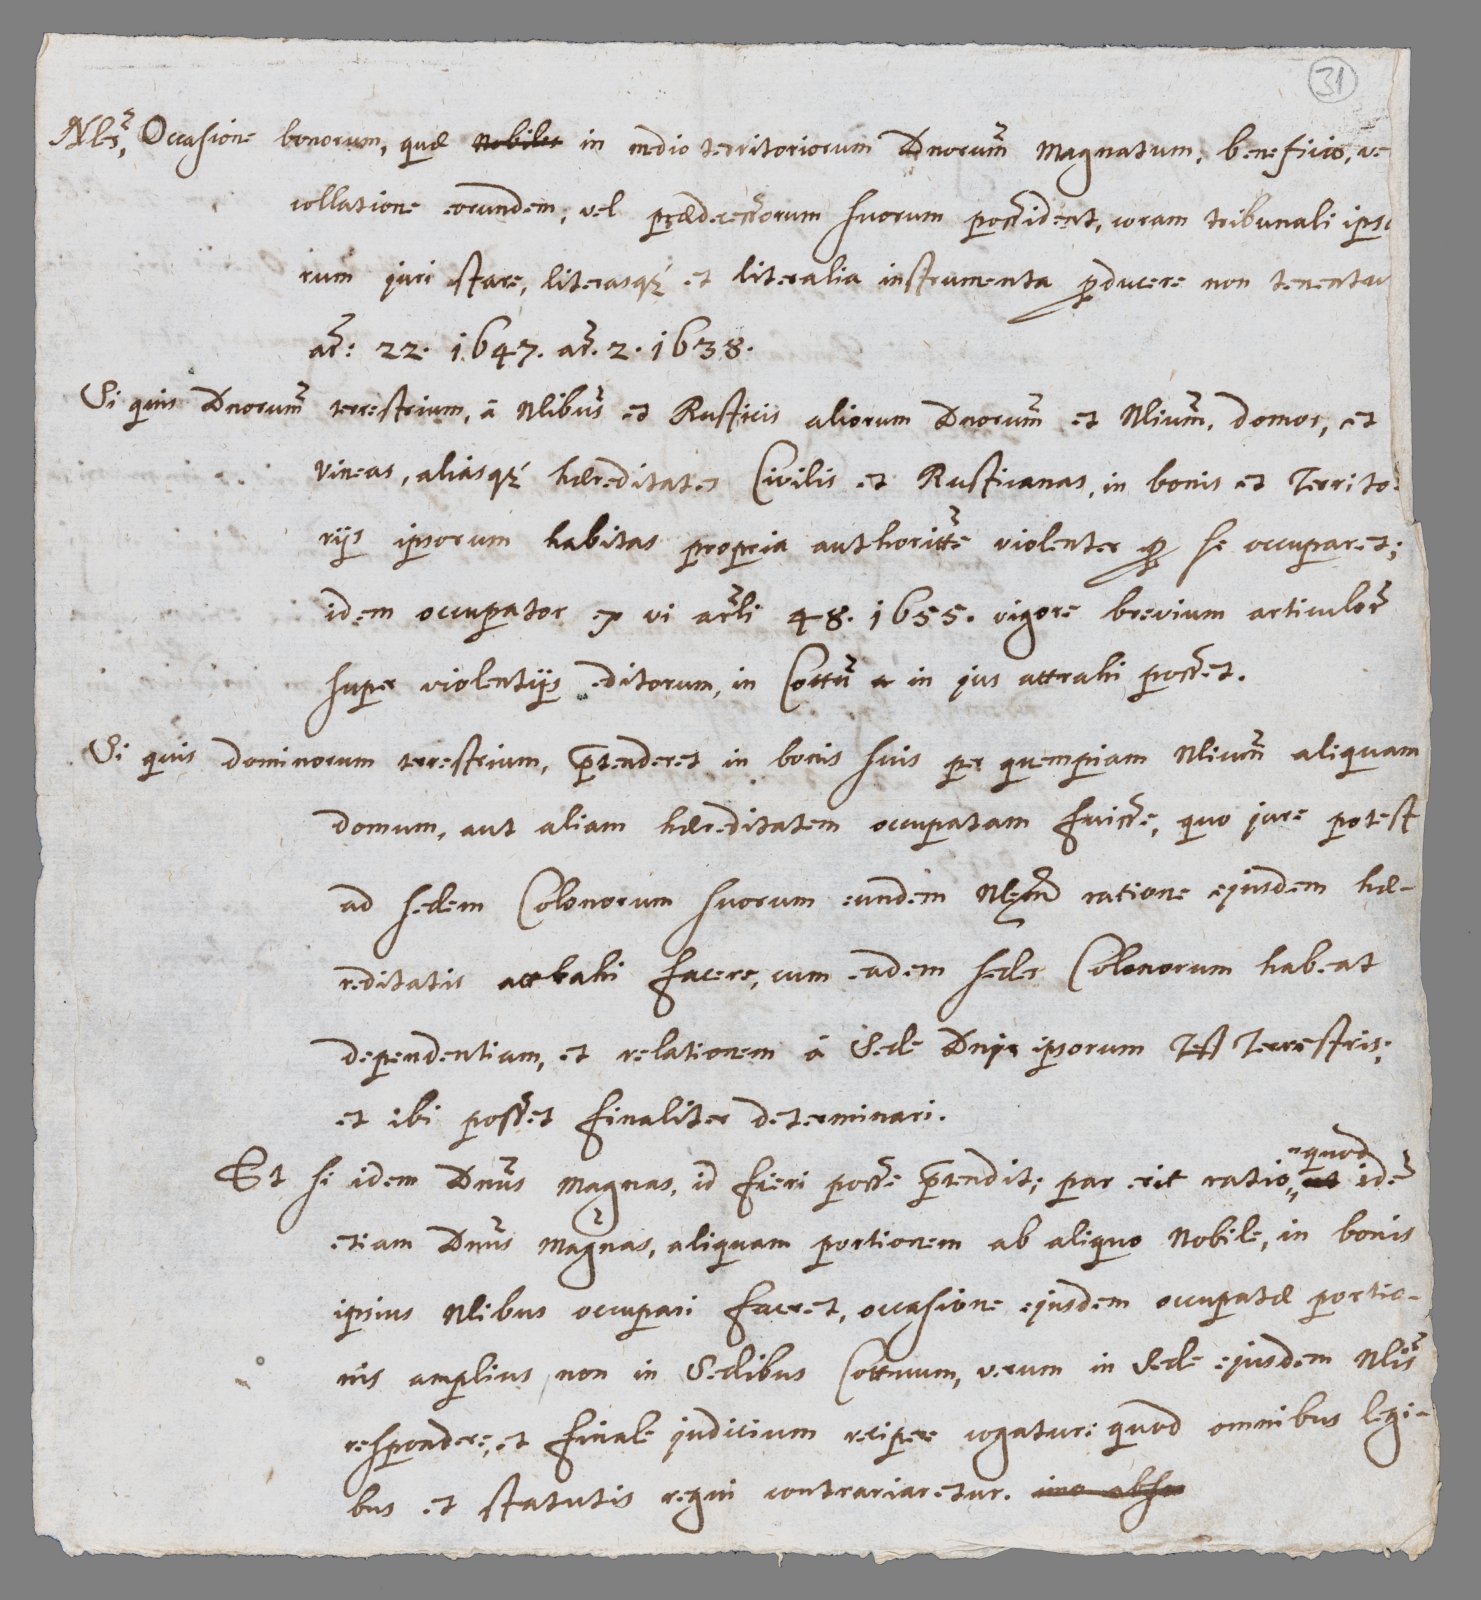 31
Nles, Occasione bonorum, quæ nobiles in medio territoriorum Dnorum Magnatum, beneficio, ve
collatione eorundem, vel prædecessorum suorum possident, coram tribunali ipso
rum juri stare, literasq́ et literalia instrumenta producere non tenentu
ar: 22. 1647. ar. 2. 1638.
Si quis Dnorum terrestrium, à Nlibus et Rusticis aliorum Dnorum et Nlium, domos, et
vineas, aliasq́ hæreditates Civilis et Rusticanas, in bonis et Territo-
rijs ipsorum habitas propria authoritte violenter pro se occuparet;
idem occupator ex vi arli 48. 1655. vigore brevium articulor
super violentijs editorum, in Cottu in jus attrahi posset.
Si quis dominorum terrestrium, prætenderet in bonis suis per quempiam Nlium aliquam
domum, aut aliam hæreditatem occupatam fuisse, quo jure potest
ad sedem Colonorum suorum eundem Nlem ratione ejusdem hæ-
reditatis attrahi facere, cum eadem sedes Colonorum habeat
dependentiam, et relationem à Sede Dnis ipsorum Test Terrestris;
et ibi posset finaliter determinari.
Et si idem Dnus Magnas, id fieri posse prætendit; par erit ratio, ut quod idē
etiam Dnus Magnas, aliquam portionem ab aliquo Nobile, in bonis
ipsius Nlibus occupari faceret, occasione ejusdem occupatæ portio-
nis amplius non in Sedibus Cottuum, verum in Sede ejusdem Nlis
respondere, et finale judicium recipere cogatur: quod omnibus legi-
bus et statutis regni contrariaretur. imo